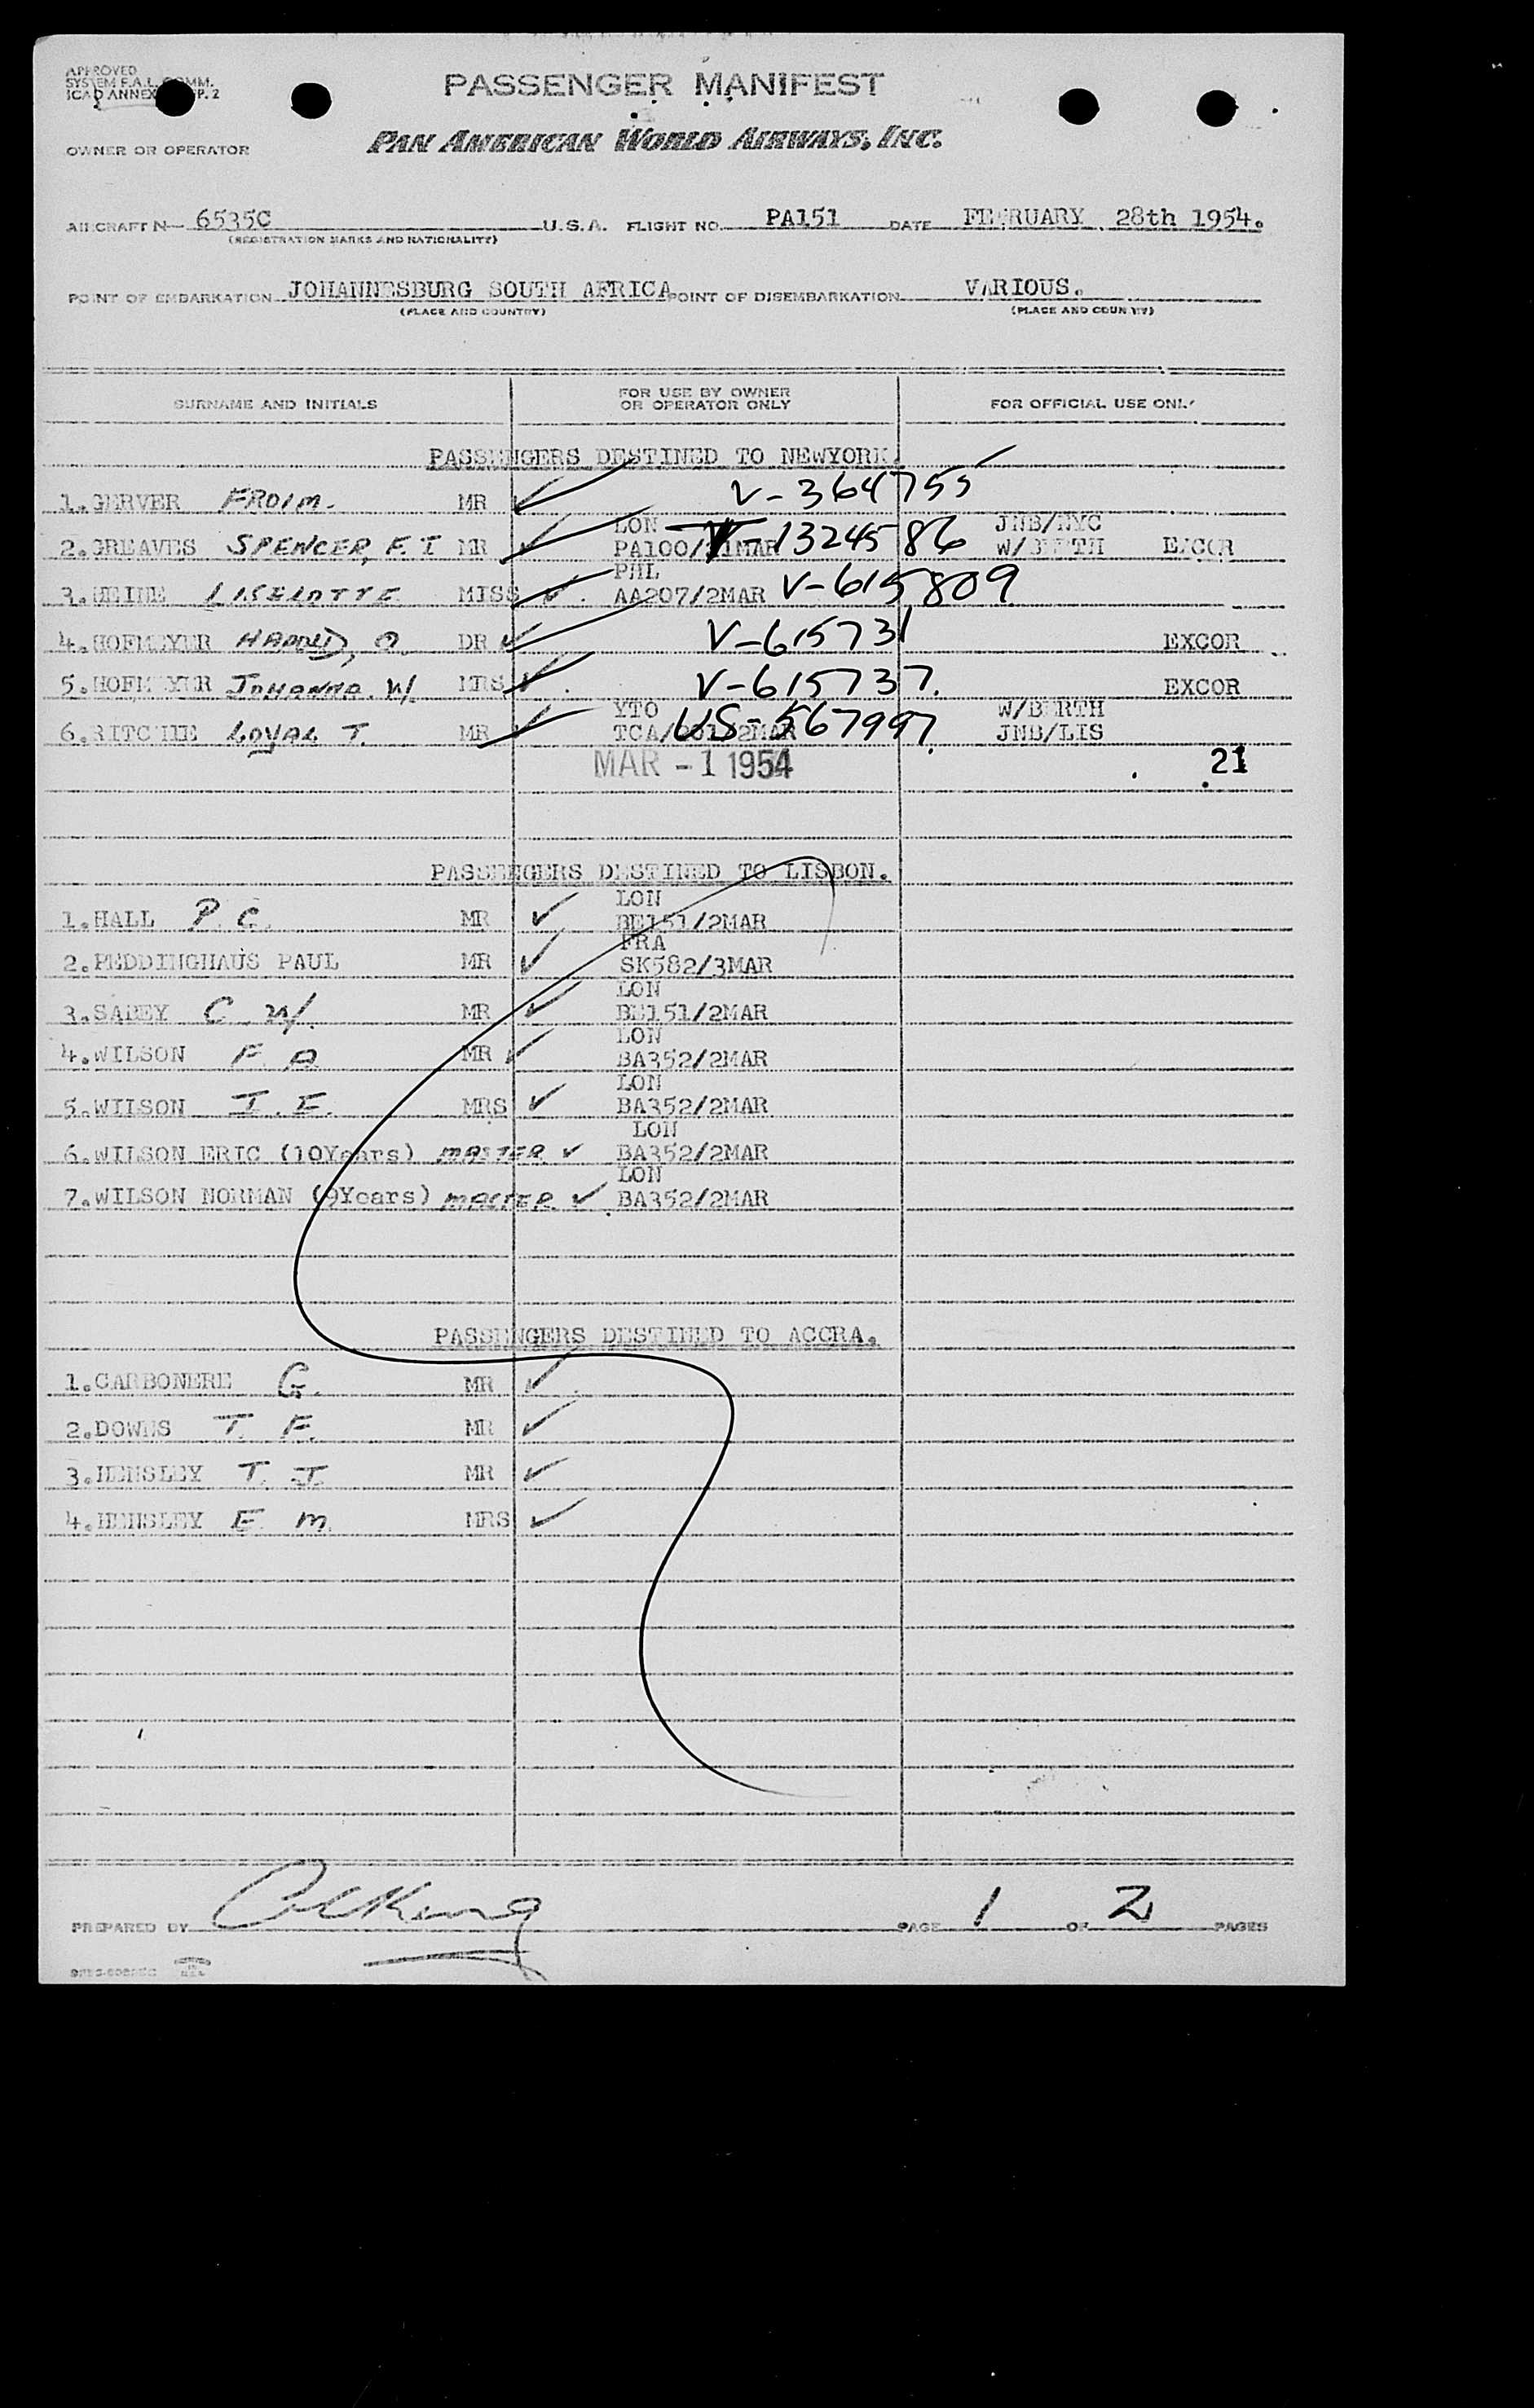 APPROVED
SYSTEM F.A.L. COMM.
ICAO ANNEX P. 2
PASSENGER MANIFEST
OWNER OR OPERATOR PAN AMERICAN WORLD AIRWAYS, INC.
AIRCRAFT N- 6535C U.S.A. FLIGHT NO. PA151 DATE FEBRUARY 28th 1954.
(REGISTRATION MARKS AND NATIONALITY)
POINT OF EMBARKATION JOHANNESBURG SOUTH AFRICA POINT OF DISEMBARKATION VARIOUS.
(PLACE AND COUNTRY) (PLACE AND COUNTRY)
SURNAME AND INITIALS FOR USE BY OWNER OR OPERATOR ONLY FOR OFFICIAL USE ONLY
PASSENGERS DESTINED TO NEWYORK.
1.GERVER FROIM. MR ✓ V-364755
LON JNB/NYC
2.GREAVES SPENCER, F. I MR ✓ PA100/21MAR V-1324586 W/BERTH EXCOR
PHL
3.HEINE LISELOTTE MISS ✓ AA207/2MAR V-615809
4.HOFMEYER HAROLD, O. DR ✓ V-615731 EXCOR
5.HOFMEYER JOHANNA. W. MRS ✓ V-615737. EXCOR
YTO W/BERTH
6.RITCHIE LOYAL T. MR ✓ TCA/ 2MAR US-567997. JNB/LIS
MAR -1 1954 21
PASSENGERS DESTINED TO LISBON.
LON
1.HALL P. C. MR ✓ BE151/2MAR
FRA
2.PEDDINGHAUS PAUL MR ✓ SK582/3MAR
LON
3.SABEY C. W. MR ✓ BE151/2MAR
LON
4.WILSON F. A MR ✓ BA352/2MAR
LON
5.WILSON I. E. MRS ✓ BA352/2MAR
LON
6.WILSON ERIC (10Years) MASTER ✓ BA352/2MAR
LON
7.WILSON NORMAN (9Years) MASTER ✓ BA352/2MAR
PASSENGERS DESTINED TO ACCRA.
1.CARBONERE G. MR ✓
2.DOWNS T. F. MR ✓
3.HENSLEY T. J. MR ✓
4.HENSLEY E. M. MRS ✓
PREPARED BY PAGE 1 OF 2 PAGES